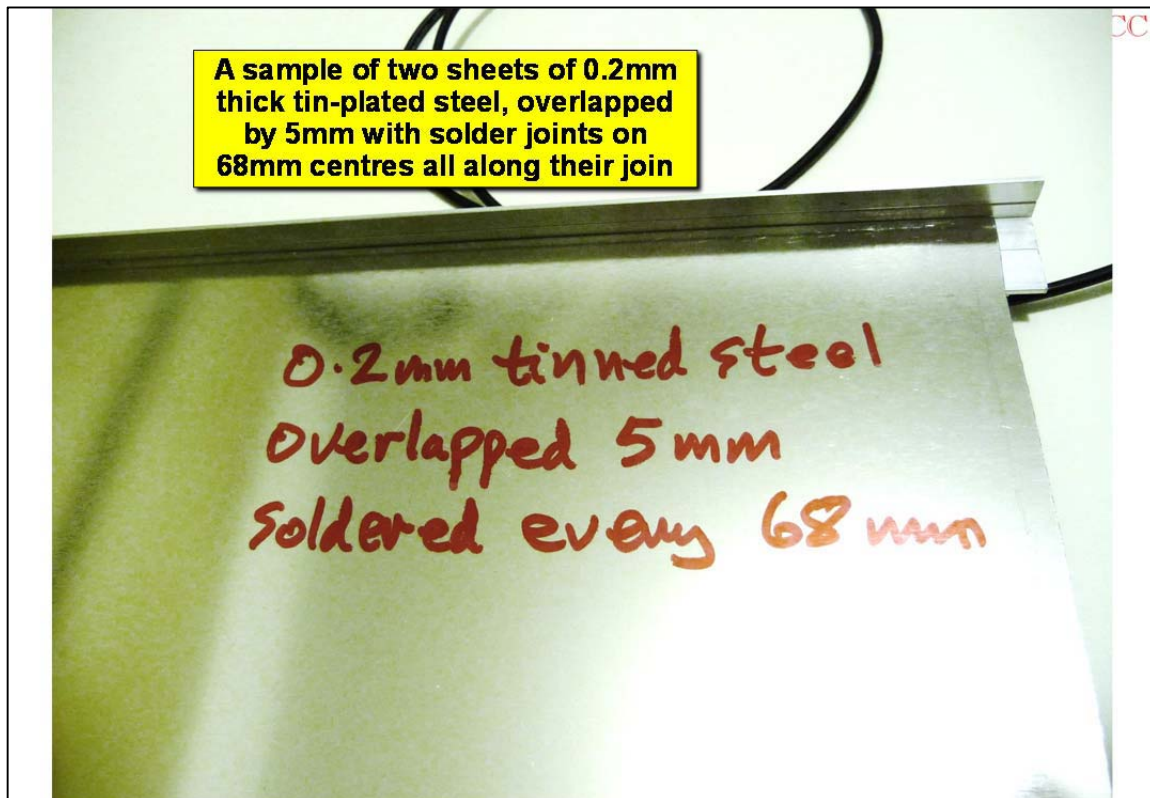 A sample of two sheets of 0.2mm
thick tin-plated steel, overlapped
by 5mm with solder joints on
68mm centres all along their join
CC
0.2mm tinned steel
Overlapped 5mm
Soldered every 68mm